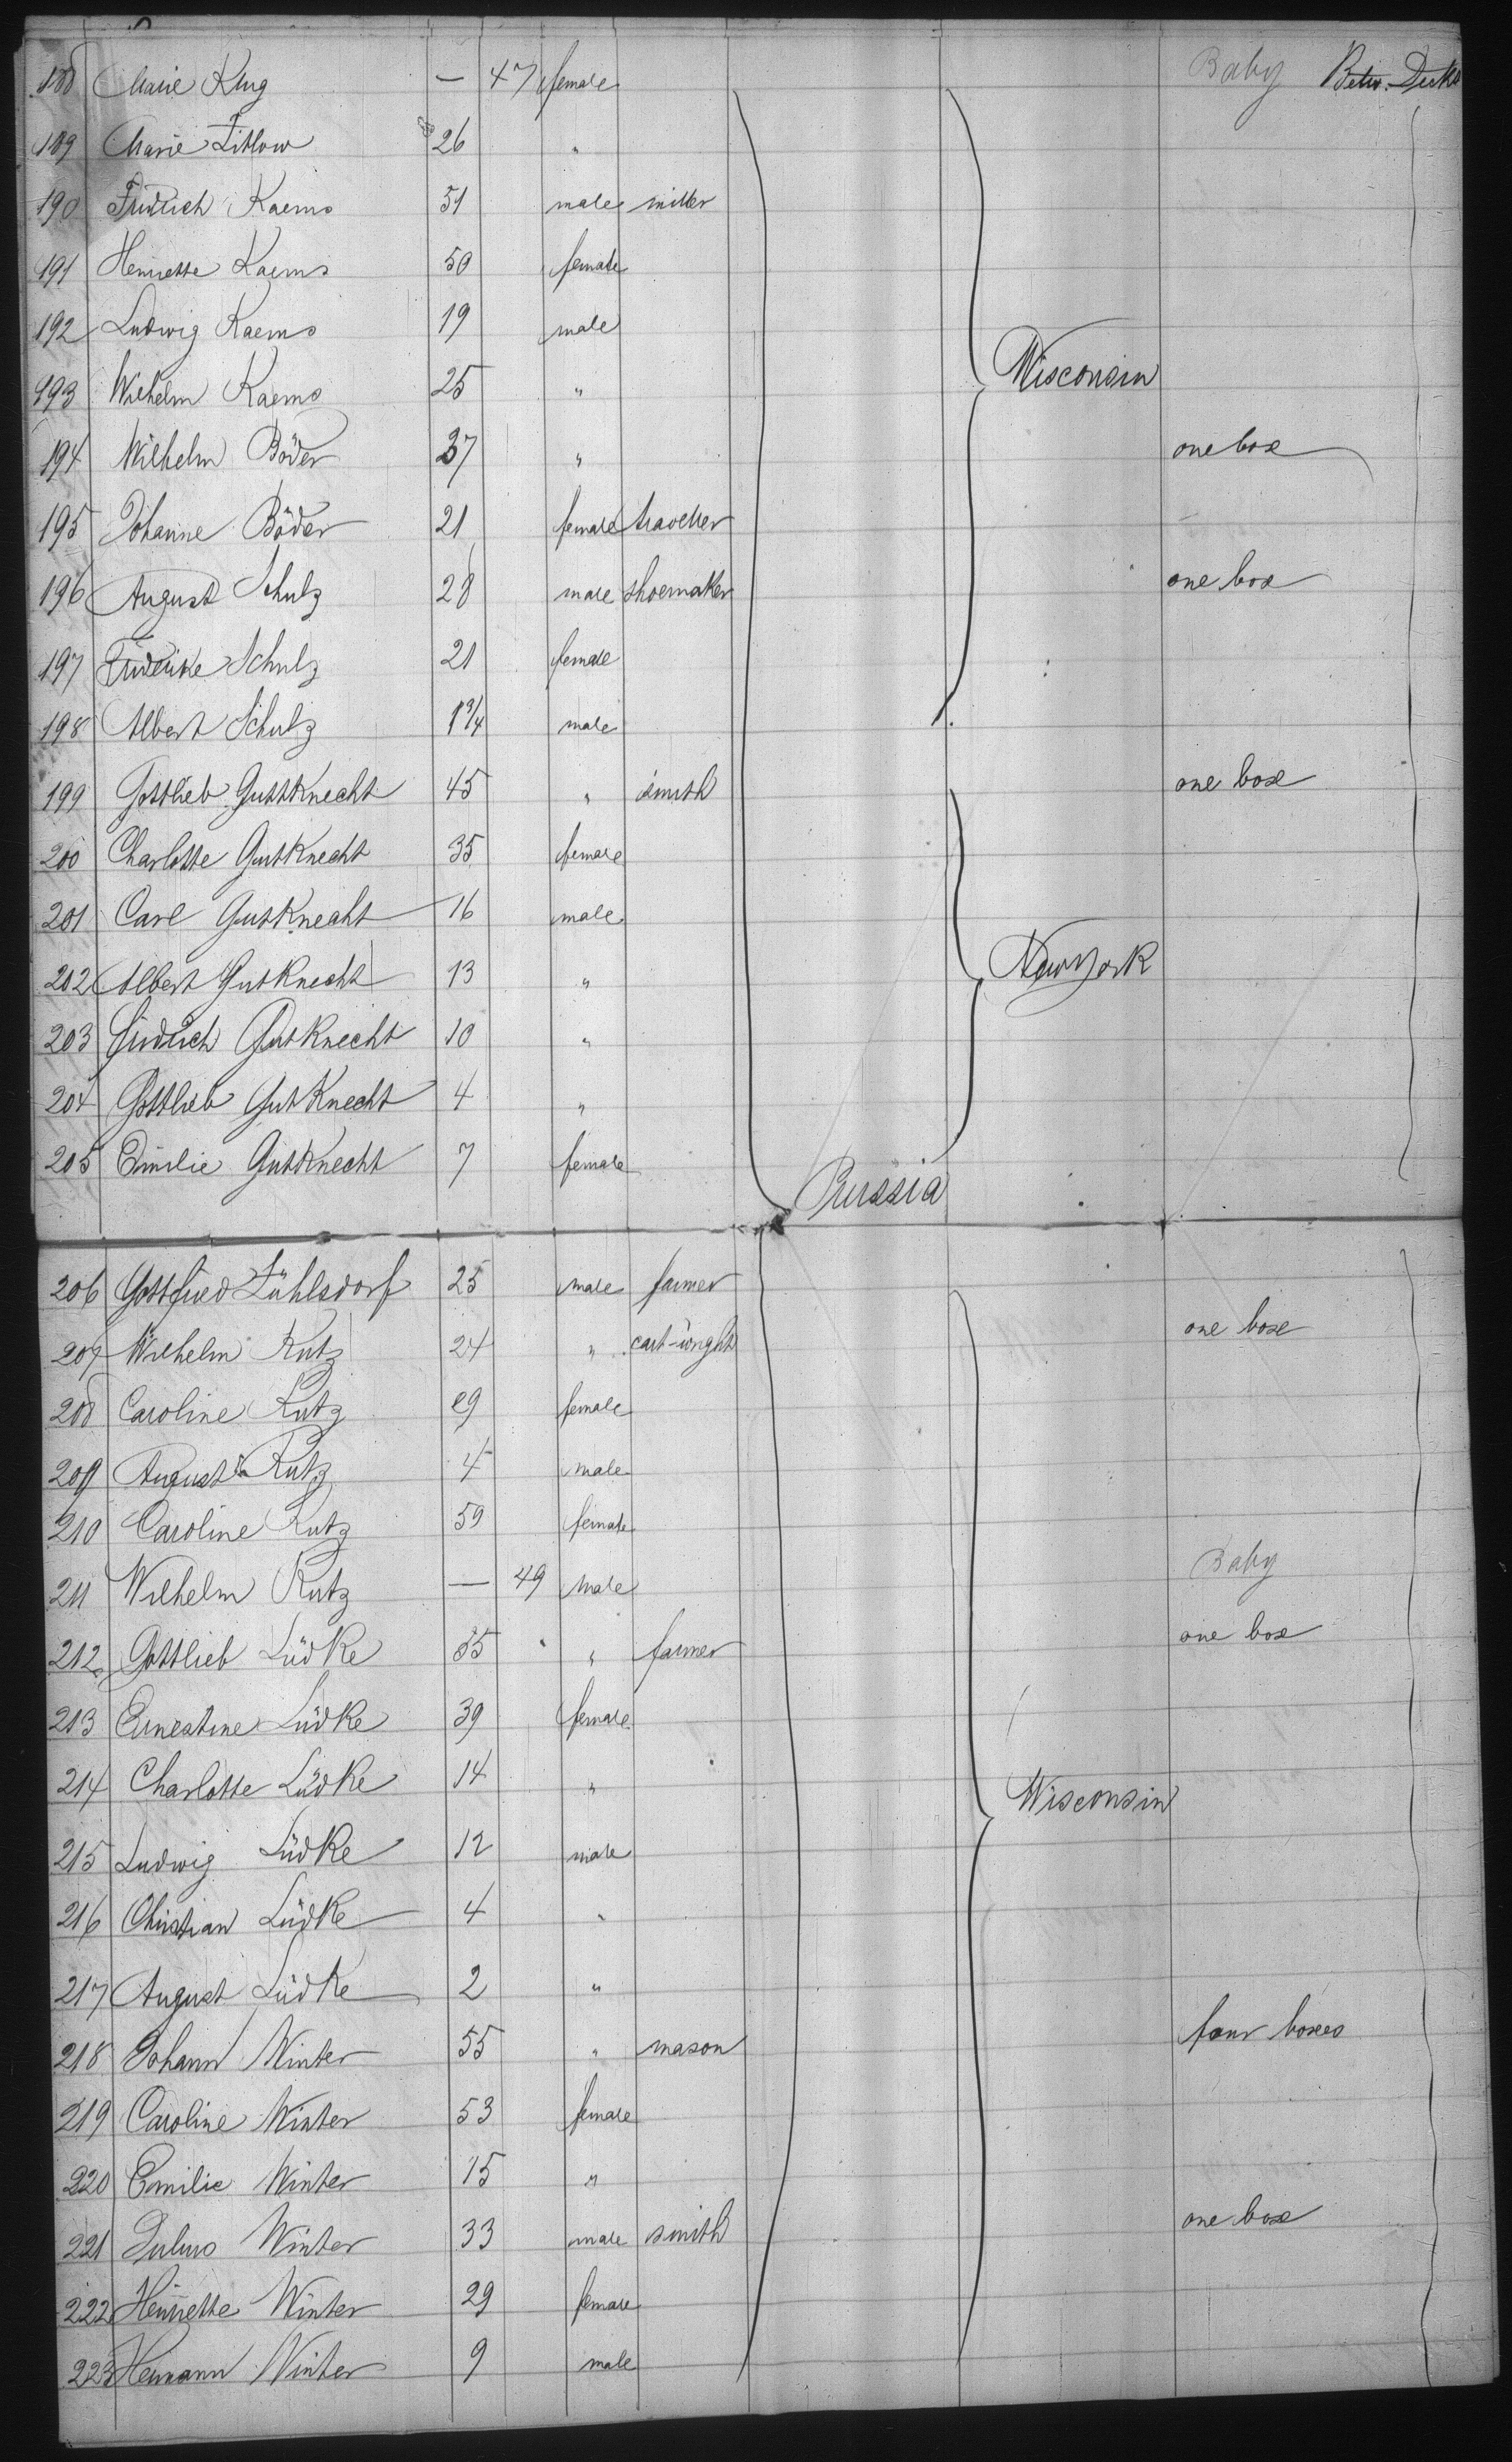 188 Marie Klug — 47 female Baby Betw. Decks
189 Marie Litlow 26 "
190 Fridrich Kaems 51 male miller
191 Henriette Kaems 50 female
192 Ludwig Kaems 19 male
193 Wilhelm Kaems 25 "
Wisconsin
194 Wilhelm Böder 37 " one box
195 Johanne Böder 21 female traveller
196 August Schulz 28 male shoemaker one box
197 Friderike Schulz 21 female
198 Albert Schulz 1 3/4 male
199 Gottlieb Guttknecht 45 " smith one box
200 Charlotte Gutknecht 35 female
201 Carl Gutknecht 16 male
202 Albert Gutknecht 13 "
New York
203 Fridrich Gutknecht 10 "
204 Gottlieb Gutknecht 4 "
205 Emilie Gutknecht 7 female
Prussia
206 Gottfried Zühlsdorf 25 male farmer
207 Wilhelm Rutz 24 " cart-wright one box
208 Caroline Rutz 29 female
209 August Rutz 4 male
210 Caroline Rutz 59 female
211 Wilhelm Rutz — 49 male Baby
212 Gottlieb Lüdke 35 " farmer one box
213 Ernestine Lüdke 39 female
214 Charlotte Lüdke 14 "
Wisconsin
215 Ludwig Lüdke 12 male
216 Christian Lüdke 4 "
217 August Lüdke 2 "
218 Johann Winter 55 " mason four boxes
219 Caroline Winter 53 female
220 Emilie Winter 15 "
221 Julius Winter 33 male smith one box
222 Henriette Winter 29 female
223 Hermann Winter 9 male